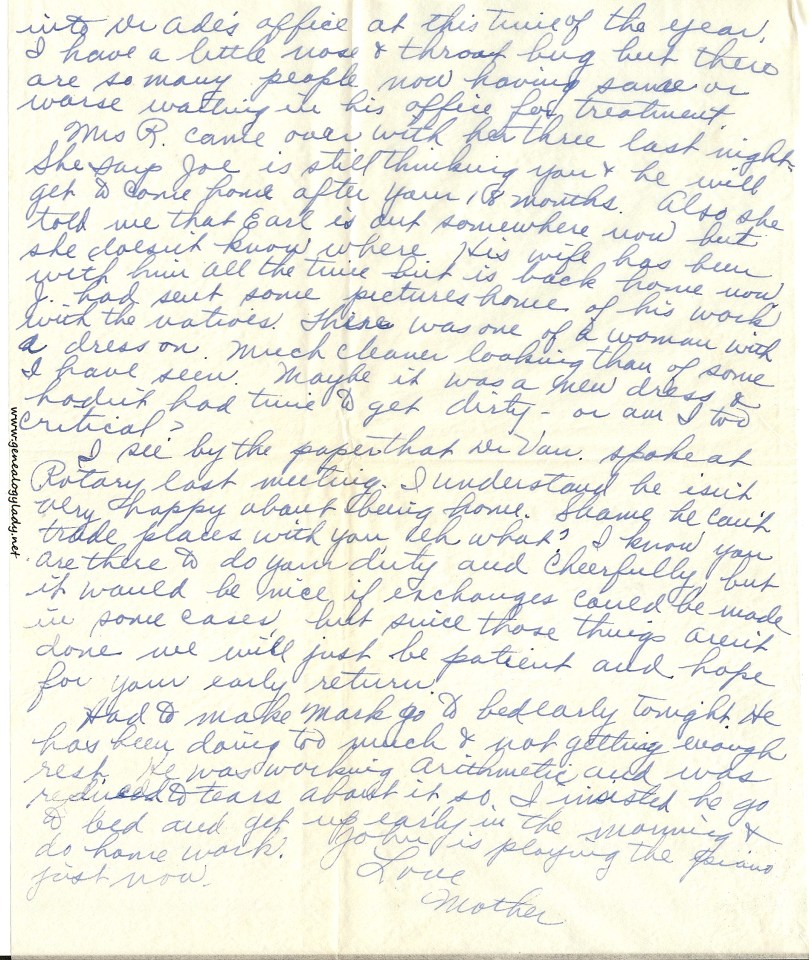 into Dr Ade's office at this time of the year.
I have a little nose & throat bug but there
are so many people now having same or
worse waiting in his office for treatment
Mrs R. came over with her three last night.
She says Joe is still thinking you & he will
get to come home after your 18 months. Also she
told me that Earl is out somewhere now but
she doesn't know where. His wife has been
with him all the time but is back home now
J. had sent some pictures home of his work
with the natives. There was one of a woman with
a dress on. Much cleaner looking than of some
I have seen. Maybe it was a new dress &
hadn't had time to get dirty - or am I too
critical?
I see by the paper that Dr Van. spoke at
Rotary last meeting. I understand he isn't
very happy about being home. Shame he can't
trade places with you eh what? I know you
are there to do your duty and cheerfully, but
it would be nice if exchanges could be made
in some cases, but since those things aren't
done we will just be patient and hope
for your early return.
Had to make Mark go to bed early tonight. He
has been doing too much & not getting enough
rest. He was working arithmetic and was
reduced to tears about it so I insisted he go
to bed and get up early in the morning &
do home work. John is playing the piano
just now.
Love
Mother
www.genealogylady.net